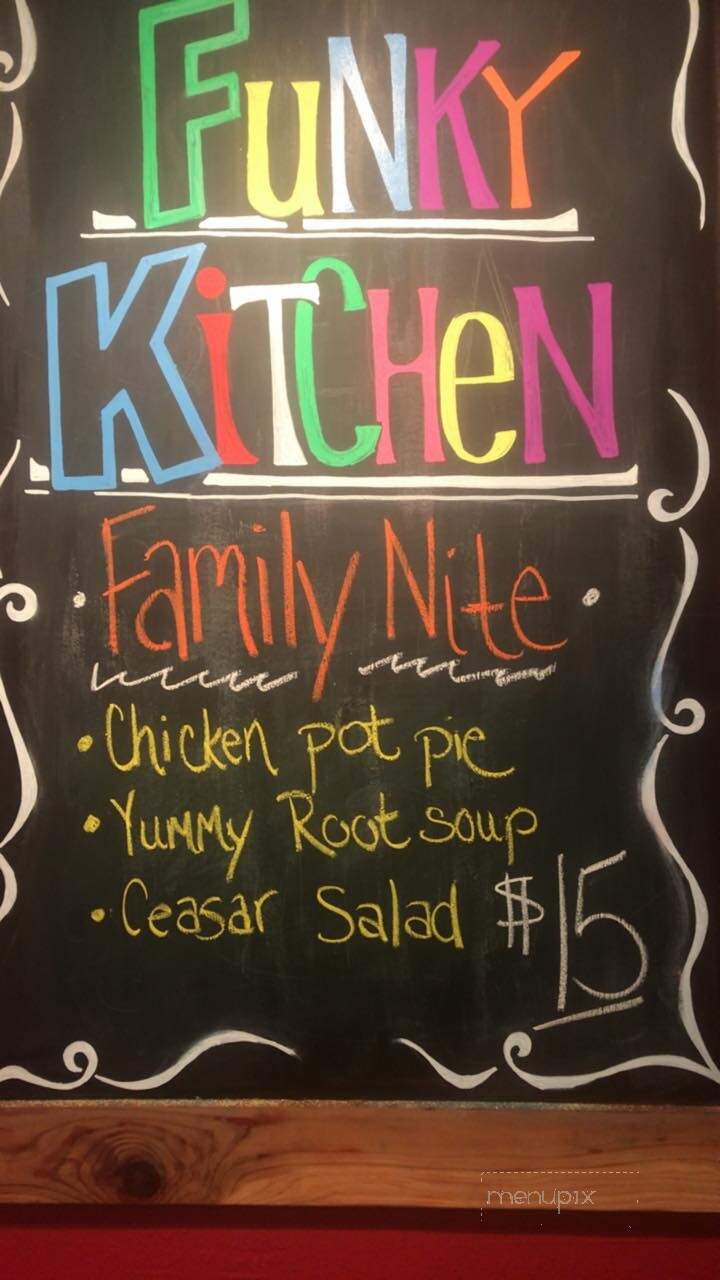 FuNKY
KiTCHeN
Family Nite
• Chicken pot pie
• Yummy Root soup
• Ceasar Salad $15
menupix